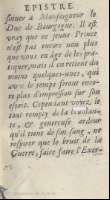 EPISTRE.
ſeuer à Monſeigneur le
Duc de Bourgogne. Il eſt
vray que ce jeune Prince
n'eſt pas encore non plus
que vous en âge de les pra-
tiquer, mais il en retient du
moins quelques-unes, qui
avec le temps feront
plus d'impreſſion ſur ſon
eſprit. Cependant voyez, il
tout remply de la
& genereuſe ardeur
qu'il tient de ſon ſang, ne
reſpirer que le bruit de la
Guerre, faire faire l'Exer-